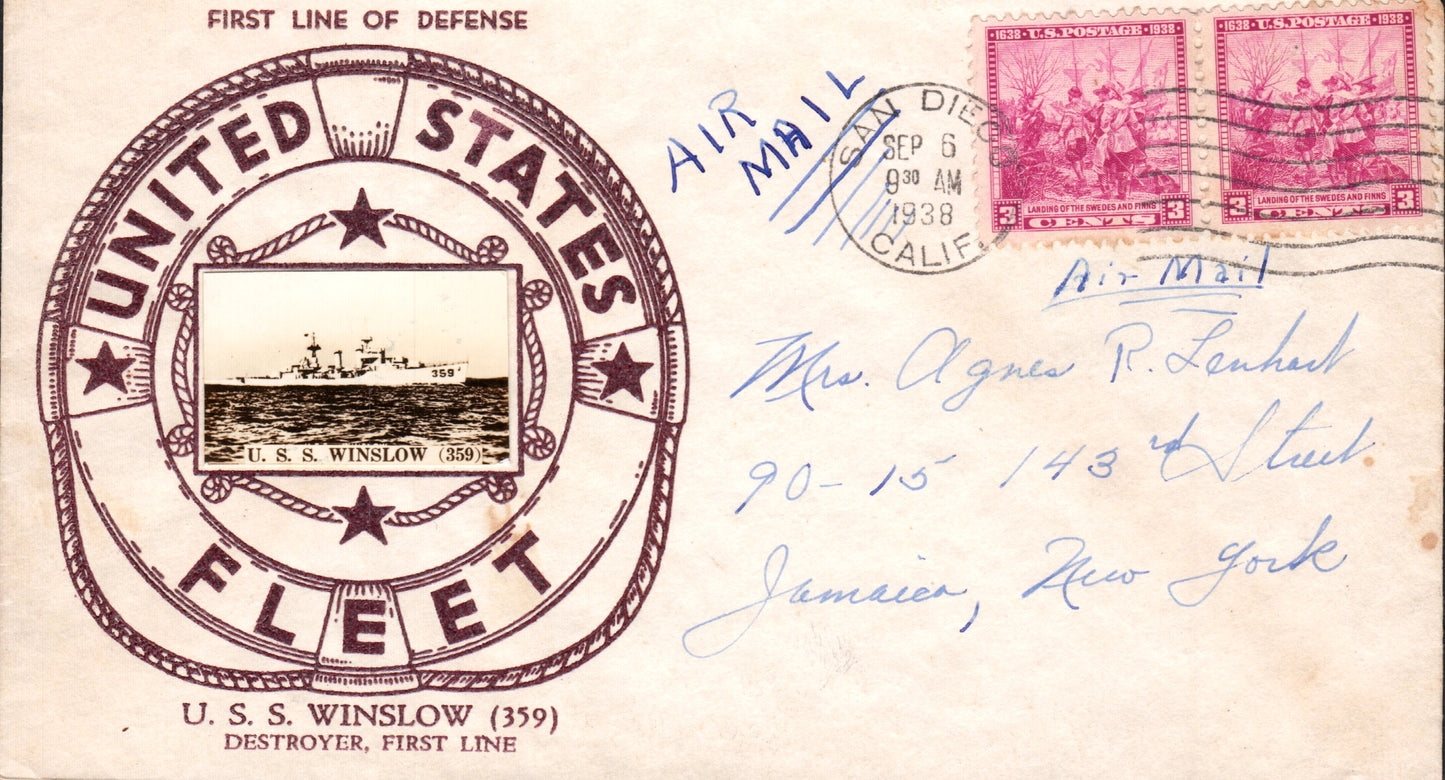 FIRST LINE OF DEFENSE
UNITED STATES
FLEET
359
U. S. S. WINSLOW (359)
U. S. S. WINSLOW (359)
DESTROYER, FIRST LINE
AIR
MAIL
SAN DIEGO
SEP 6
9 30 AM
1938
CALIF.
1638 · U.S. POSTAGE · 1938
LANDING OF THE SWEDES AND FINNS
3 CENTS 3
1638 · U.S. POSTAGE · 1938
LANDING OF THE SWEDES AND FINNS
3 CENTS 3
Air Mail
Mrs. Agnes R. Lenhart
90-15 143rd Street
Jamaica, New York